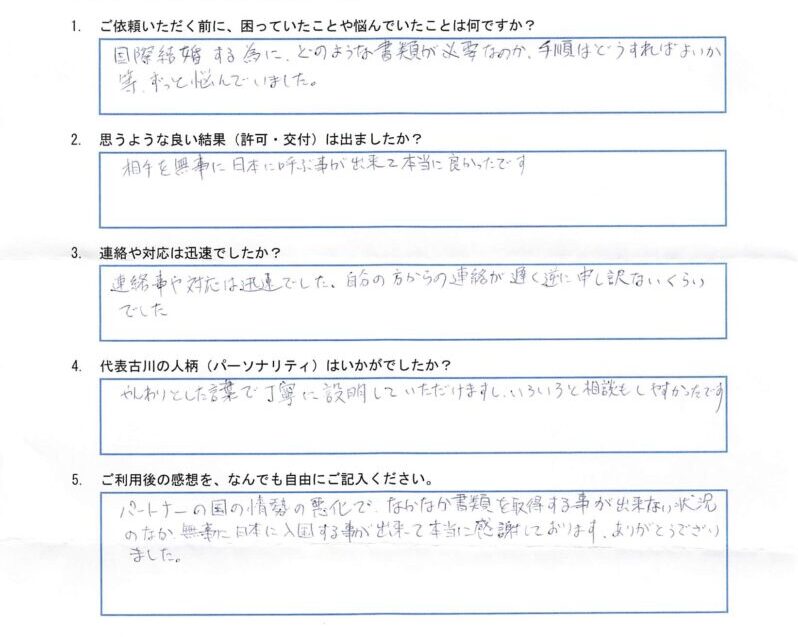 1. ご依頼いただく前に、困っていたことや悩んでいたことは何ですか？
国際結婚する為に、どのような書類が必要なのか、手順はどうすればよいか
等、ずっと悩んでいました。
2. 思うような良い結果（許可・交付）は出ましたか？
相手を無事に日本に呼ぶ事が出来て本当に良かったです
3. 連絡や対応は迅速でしたか？
連絡事や対応は迅速でした、自分の方からの連絡が遅く逆に申し訳ないくらい
でした
4. 代表古川の人柄（パーソナリティ）はいかがでしたか？
やんわりとした言葉で丁寧に説明していただけますし、いろいろと相談もしやすかったです
5. ご利用後の感想を、なんでも自由にご記入ください。
パートナーの国の情勢の悪化で、なかなか書類を取得する事が出来ない状況
のなか、無事に日本に入国する事が出来て本当に感謝しております、ありがとうござい
ました。